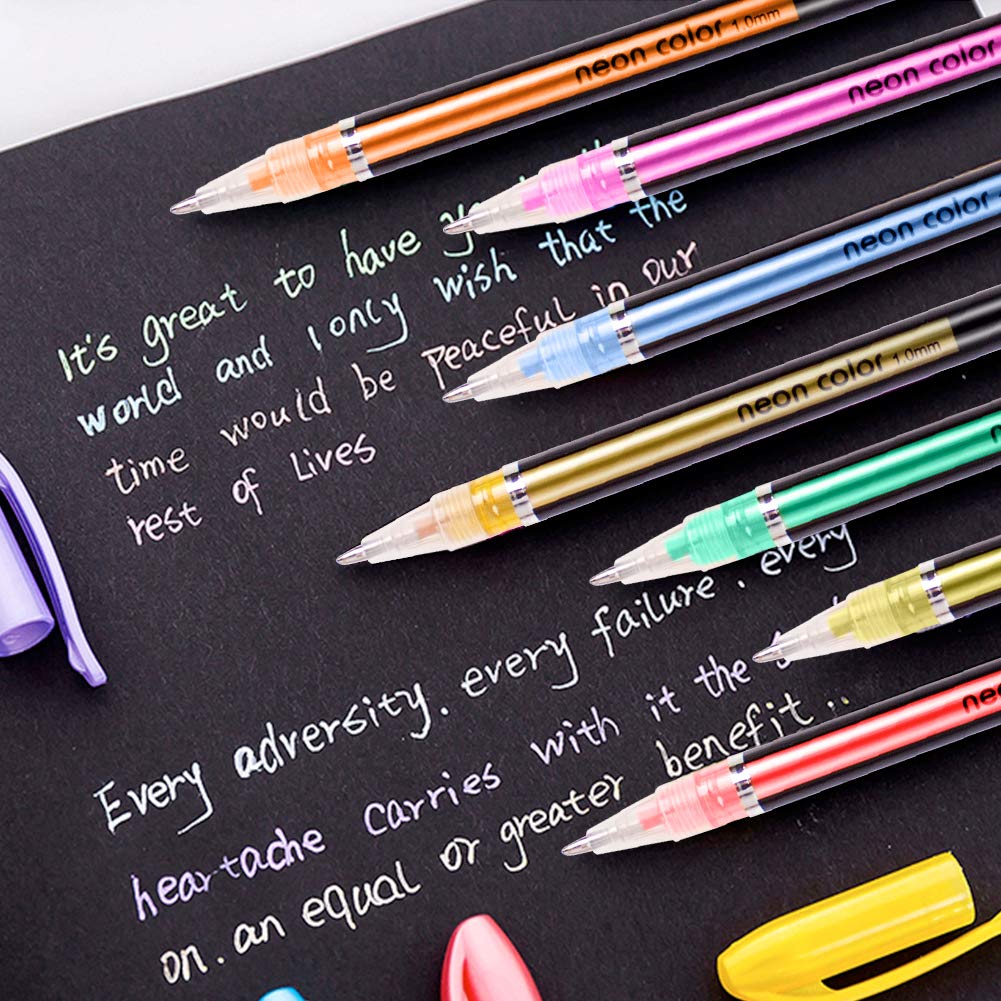 neon color 1.0mm
neon color
neon color
neon color 1.0mm
It's great to have
world and I only wish that the
time would be peaceful in our
rest of Lives
Every adversity. every failure. every
heartache carries with it the
on. an equal or greater benefit..